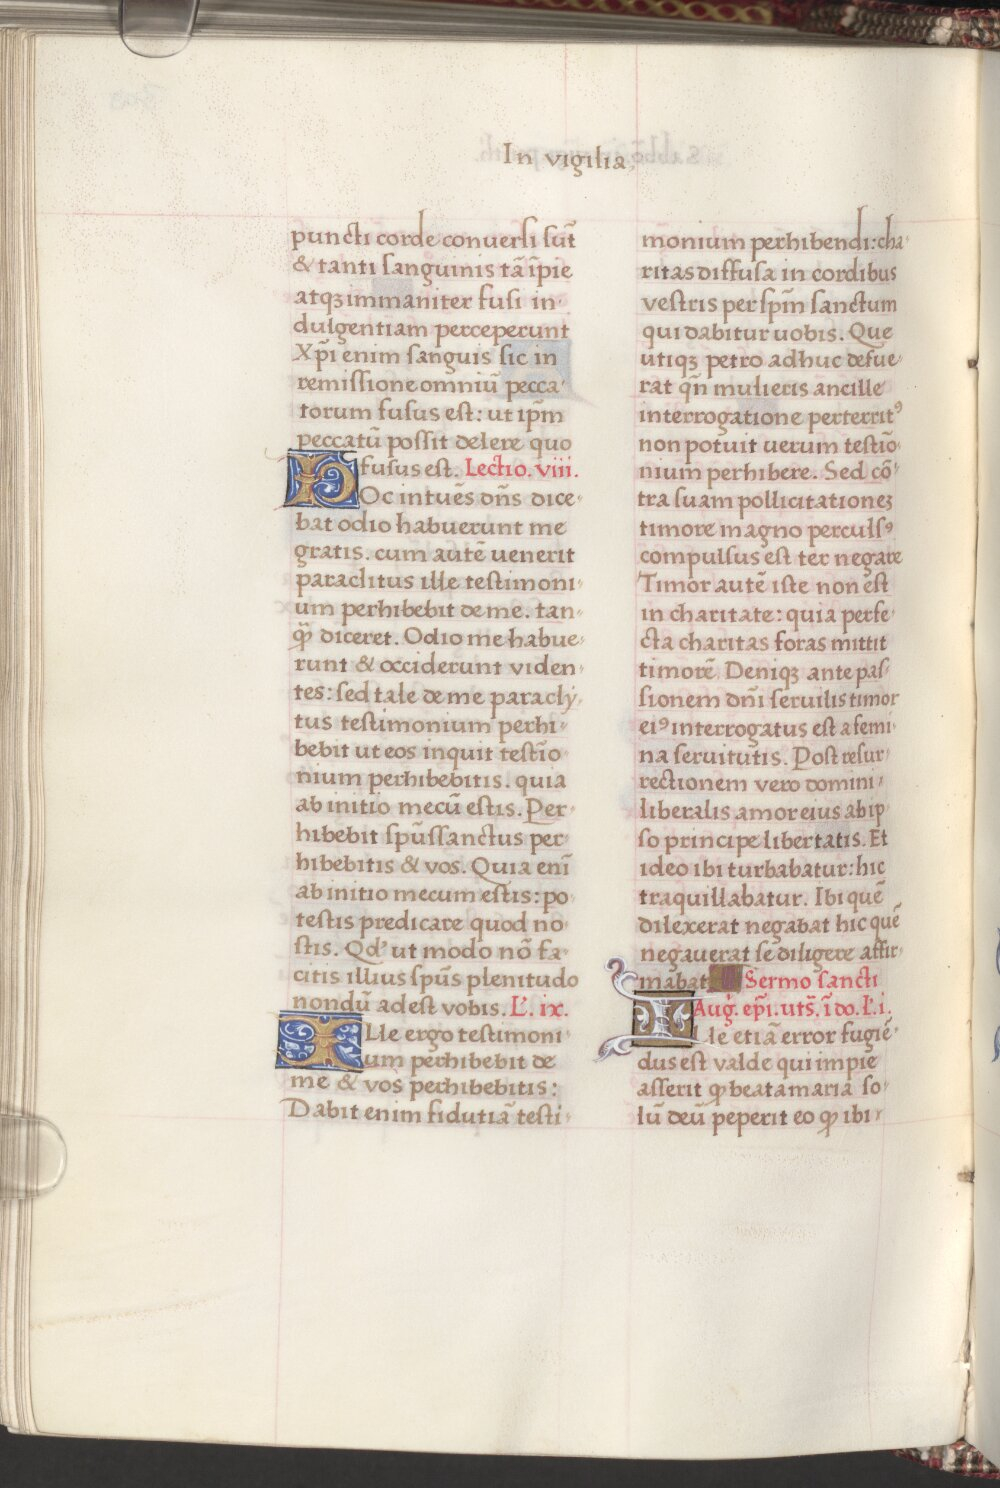 In vigilia
puncti corde conversi sūt
& tanti sanguinis tā īpie
atqꝫ immaniter fusi in-
dulgentiam perceperunt
Xp̄i enim sanguis sic in
remissione omniū pecca-
torum fusus est: ut ip̄m
peccatū possit delere quo
fusus est. Lectio. viii.
HOc intuēs dn̄s dice-
bat odio habuerunt me
gratis. cum autē uenerit
paraclitus ille testimoni-
um perhibebit de me. tan-
ꝙ̄ diceret. Odio me habue-
runt & occiderunt viden-
tes: sed tale de me paracly-
tus testimonium perhi-
bebit ut eos inquit testio-
nium perhibebitis. quia
ab initio mecū estis. Per-
hibebit sp̄ussanctus per-
hibebitis & vos. Quia enī
ab initio mecum estis: po-
testis predicare quod no-
stis. Qd' ut modo nō fa-
citis illius sp̄us plenitudo
nondū adest vobis. L'. ix.
ILle ergo testimoni-
um perhibebit de
me & vos perhibebitis:
Dabit enim fidutiā testi-
monium perhibendi: cha-
ritas diffusa in cordibus
vestris per sp̄m sanctum
qui dabitur uobis. Que
utiqꝫ petro adhuc defue-
rat qn̄ mulieris ancille
interrogatione perterritꝰ
non potuit verum testio-
nium perhibere. Sed cō-
tra suam pollicitationeꝫ
timore magno perculsꝰ
compulsus est ter negare
Timor autē iste non est
in charitate: quia perfe-
cta charitas foras mittit
timorē. Deniqꝫ ante pas-
sionem dn̄i seruilis timor
eiꝰ interrogatus est a femi-
na seruitutis. Post resur-
rectionem vero domini-
liberalis amor eius ab ip-
so principe libertatis. Et
ideo ibi turbabatur: hic
traquillabatur. Ibi quē
dilexerat negabat hic quē
negauerat se diligere affir-
mabat Sermo sancti
Aug. ep̄i. uts̄. ī do. l'. i.
ILle etiā error fugiē-
dus est valde qui impie
asserit ꝙ beata maria so-
lū deū peperit eo ꝙ ibi